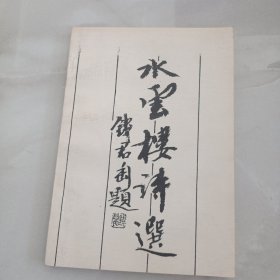 水雲樓詩選
錢君匋題